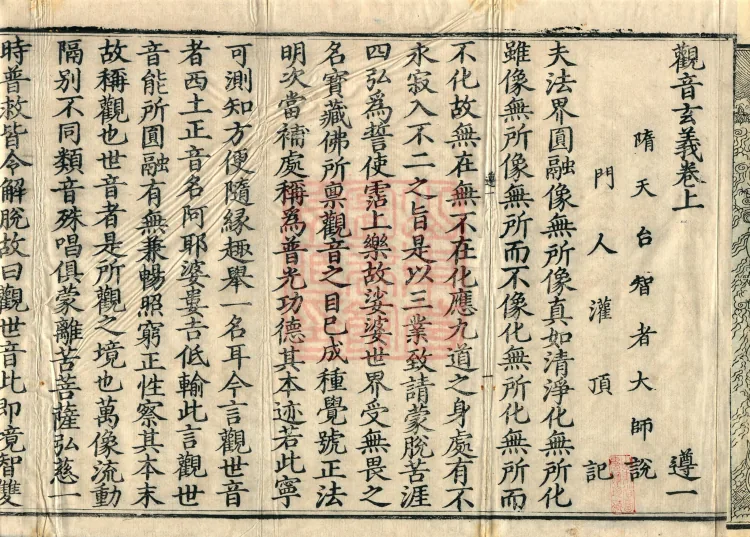 觀音玄義卷上 遵一
隋天台智者大師說
門人灌頂記
夫法界圓融像無所像真如清淨化無所化
雖像無所像無所而不像化無所化無所而
不化故無在無不在化應九道之身處有不
永寂入不二之旨是以三業致請蒙脫苦涯
四弘為誓使霑上樂故娑婆世界受無畏之
名寶藏佛所稟觀音之目已成種覺號正法
明次當補處稱為普光功德其本迹若此寧
可測知方便隨緣趣舉一名耳今言觀世音
者西土正音名阿耶婆婁吉低輸此言觀世
音能所圓融有無兼暢照窮正性察其本末
故稱觀也世音者是所觀之境也萬像流動
隔別不同類音殊唱俱蒙離苦菩薩弘慈一
時普救皆令解脫故曰觀世音此即境智雙